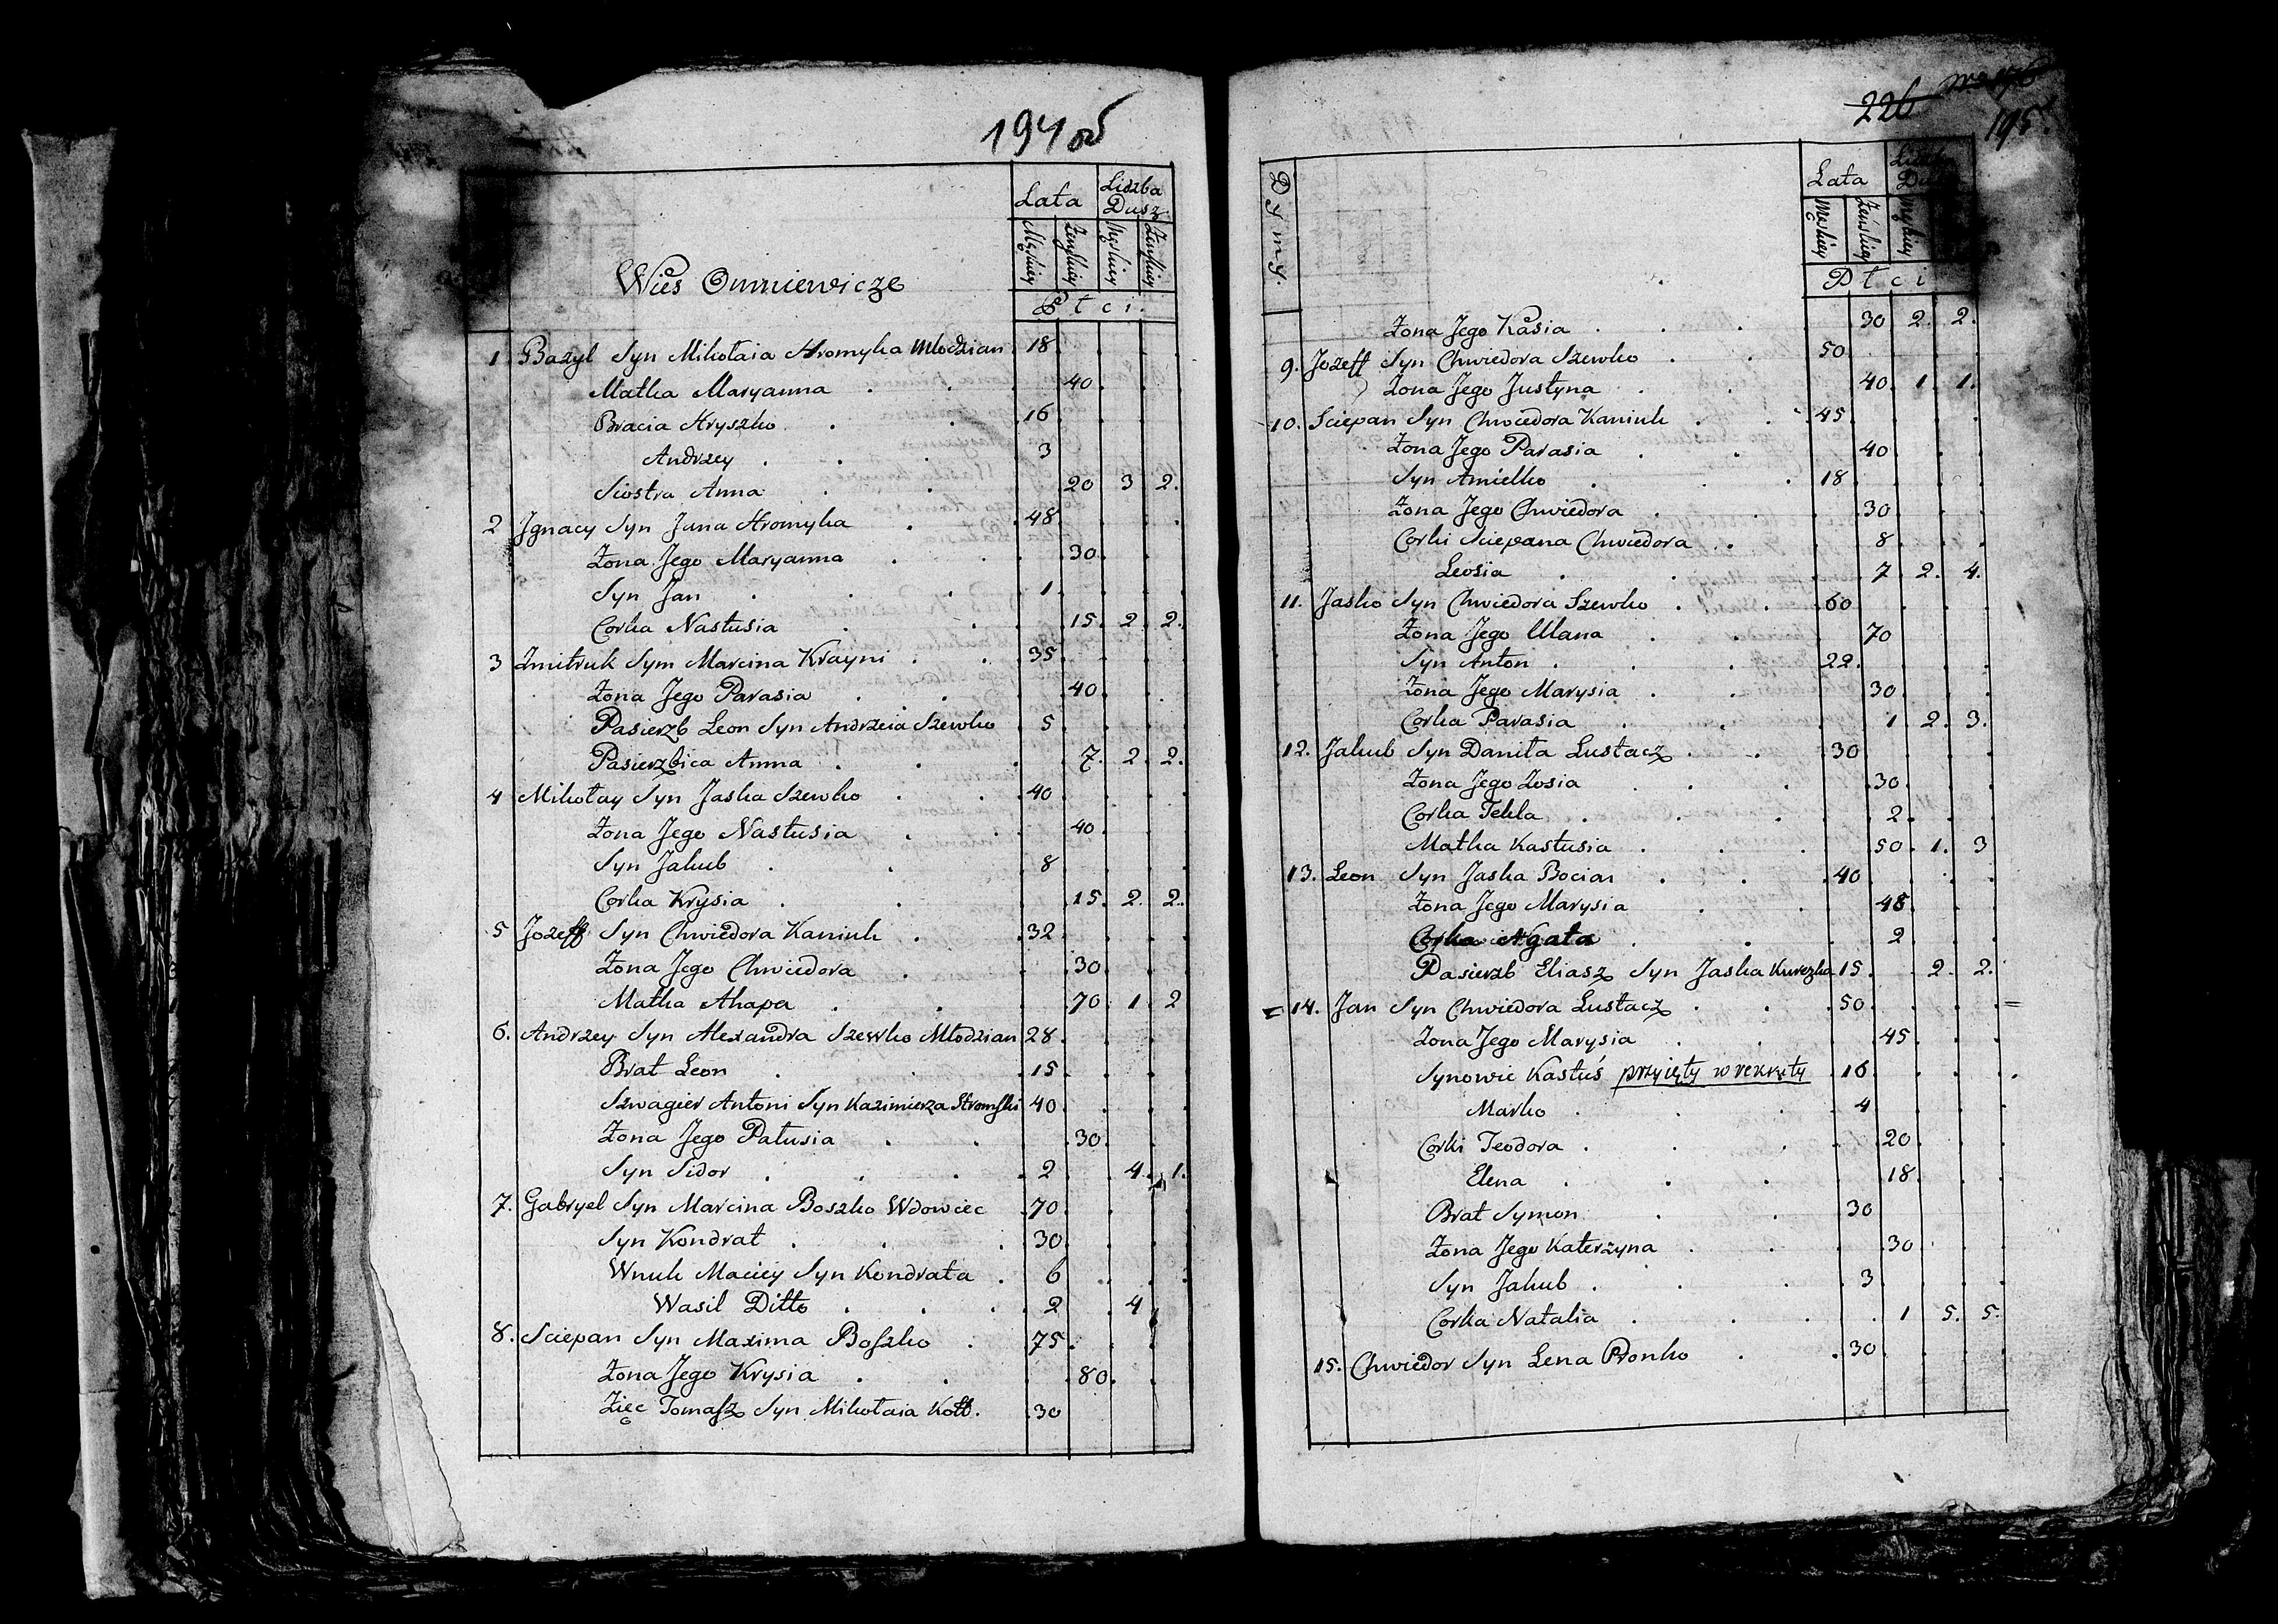 194 об
Lata Liczba Dusz
Męskiey Żeńskiey Męskiey Żeńskiey
Płci.
Wieś Omniewicze
1. Bazyl Syn Mikołaia Hromyka Młodzian 18
Matka Maryanna 40
Bracia Hryszko 16
Andrzey 3
Siostra Anna 20 3 2.
2 Jgnacy Syn Jana Hromyka 48
Żona Jego Maryanna 30
Syn Jan 1
Corka Nastusia 15. 2 2.
3 Zmitruk Sym Marcina Krayni 35
Żona Jego Parasia 40
Pasierzb Leon Syn Andrzeia Szewko 5
Pasierzbica Anna 7. 2. 2.
4 Mikołay Syn Jaska Szewko 40
Żona Jego Nastusia 40
Syn Jakub 8
Corka Krysia 15. 2. 2.
5 Jozeff Syn Chwiedora Kaniuk 32
Żona Jego Chwiedora 30
Matka Ahapa 70. 1. 2
6. Andrzey Syn Alexandra Szewko Młodzian 28
Brat Leon 15
Szwagier Antoni Syn Kazimierza 40
Żona Jego Patusia 30
Syn Sidor 2 4. 1.
7. Gabryel Syn Marcina Boszko Wdowiec 70
Syn Kondrat 30
Wnuk Maciey Syn Kondrata 6
Wasil Ditto 2 4
8. Sciepan Syn Maxima Boszko 75
Żona Jego Krysia 80.
Zięc Tomasz Syn Mikołaia Kott. 30
226
195.
Dymy.
Lata
Męskiey Żeńskiey Męskiey
Płci
Żona Jego Kasia 30 2. 2.
9. Jozeff Syn Chwiedora Szewko 50
Żona Jego Justyna 40. 1. 1.
10. Sciepan Syn Chwiedora Kaniuk 45
Żona Jego Parasia 40
Syn Amielko 18
Żona Jego Chwiedora 30
Corki Sciepana Chwiedora 8
Leosia 7. 2. 4.
11. Jasko Syn Chwiedora Szewko 60
Żona Jego Ulana 70
Syn Anton 22.
Żona Jego Marysia 30
Corka Parasia 1 2. 3.
12. Jakub Syn Daniła Lustacz 30
Żona Jego Zosia 30
Corka Tekla 2
Matka Kastusia 50. 1. 3
13. Leon Syn Jaska Bocian 40
Żona Jego Marysia 48
Corka Agata 2
Pasierzb Eliasz Syn Jaska Kurezka 15 2. 2.
= 14. Jan Syn Chwiedora Lustacz 50 =
Żona Jego Marysia 45
Synowie Kastuś przyięty w rekruty 16
Marko 4
Corki Teodora 20
Elena 18
Brat Symon 30
Żona Jego Katerzyna 30
Syn Jakub 3
Corka Natalia 1 5. 5.
15. Chwiedor Syn Lena Pronko 30